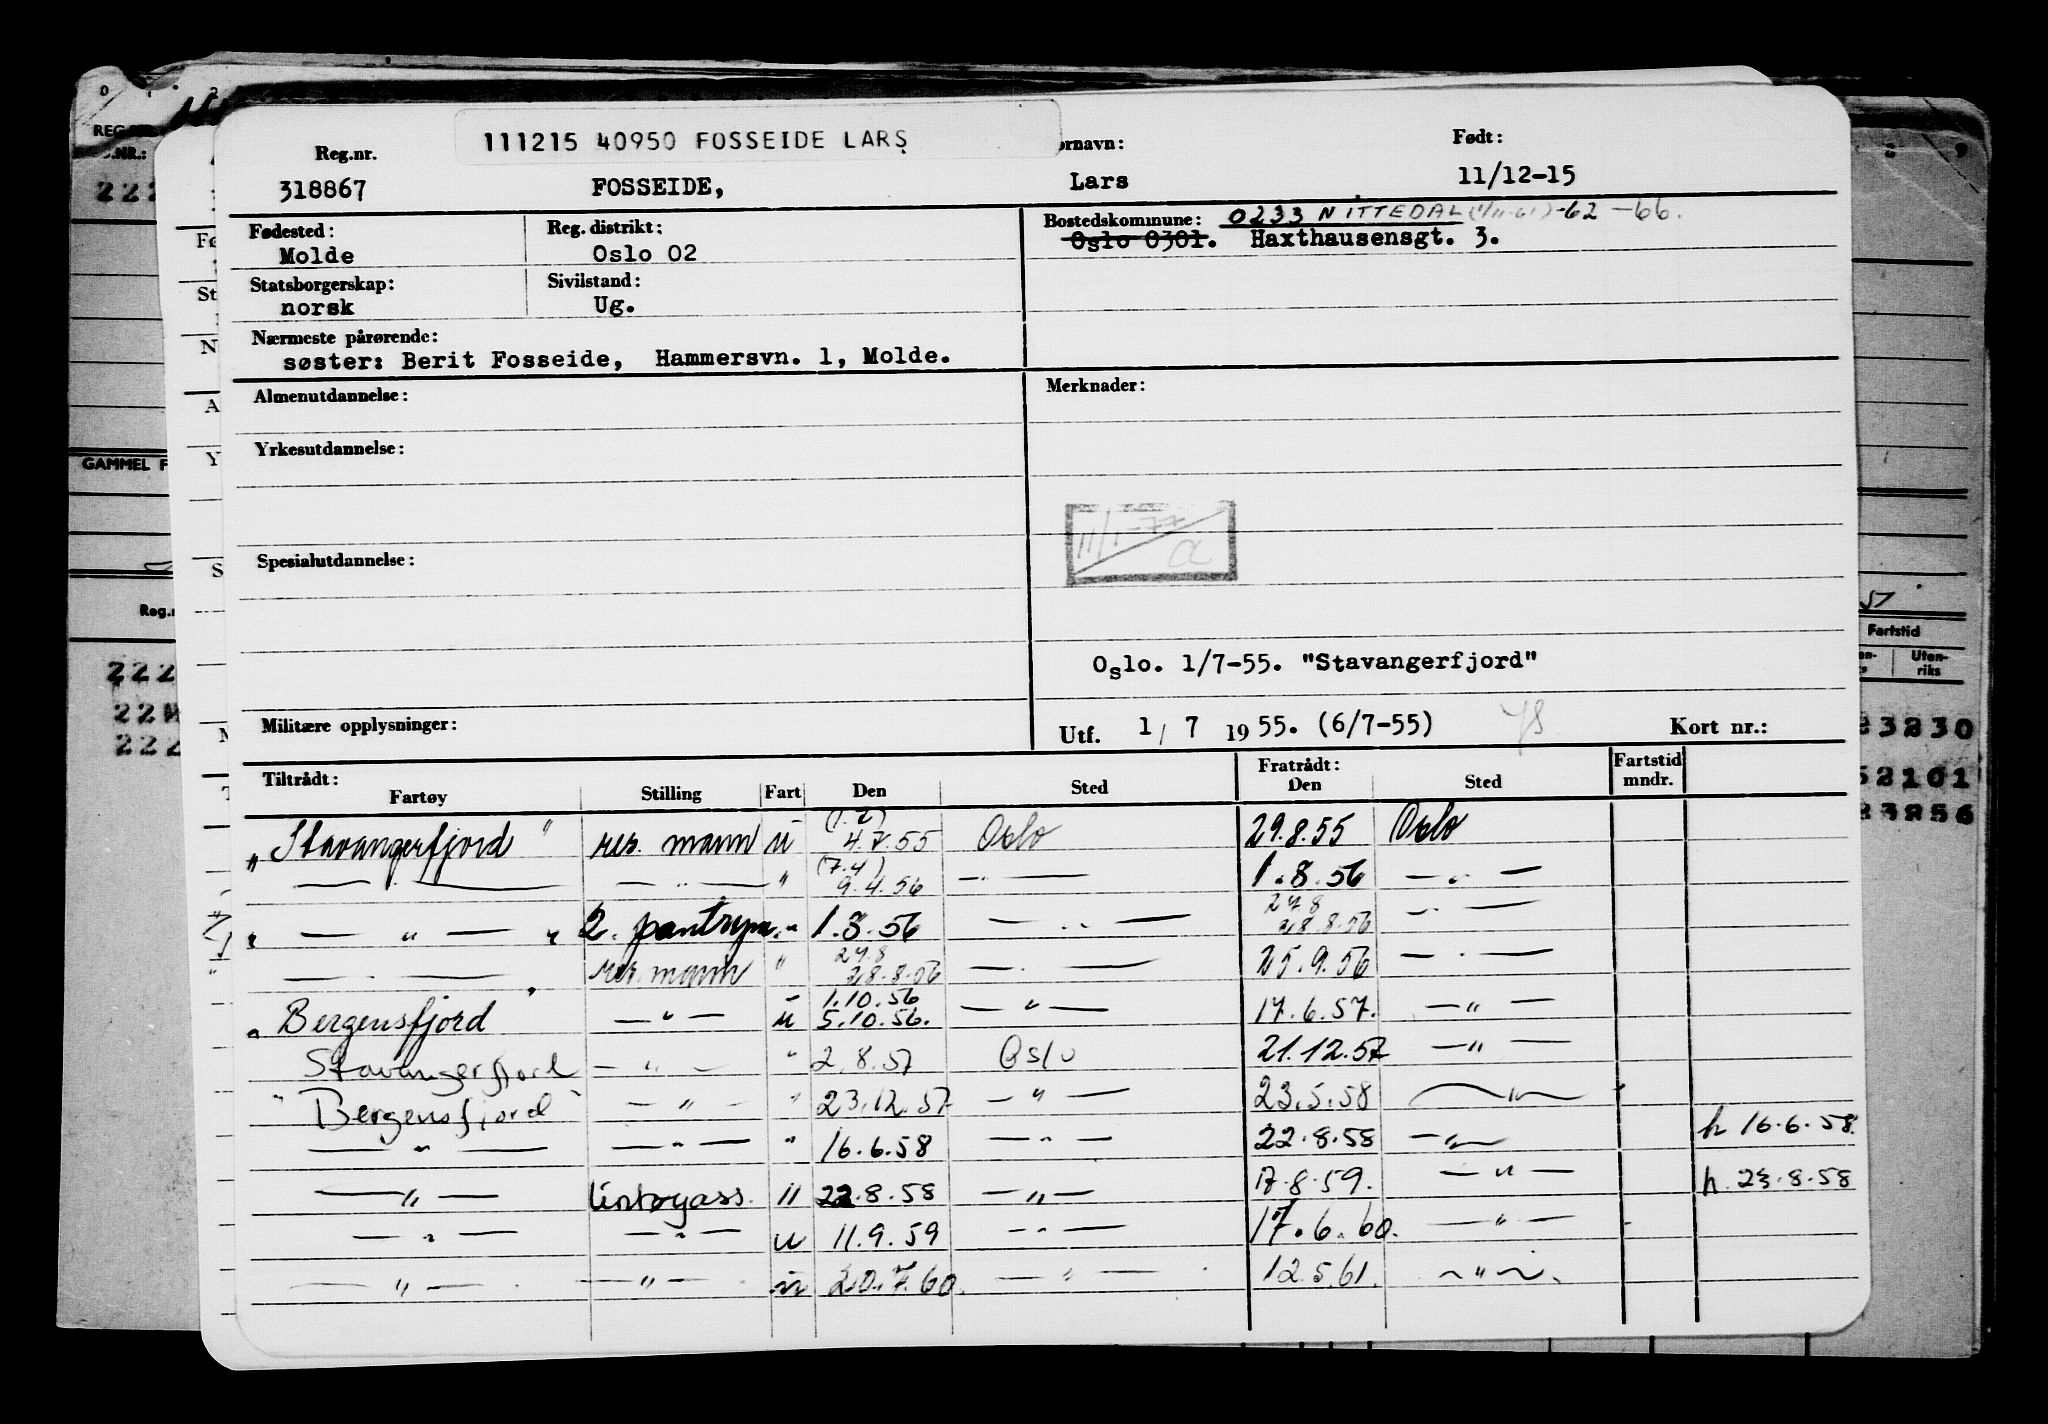 111215 40950 FOSSEIDE LARS
Reg.nr. ornavn: Født:
318867 FOSSEIDE, Lars 11/12-15
Fødested: Reg. distrikt: Bostedskommune: 0233 NITTEDAL (1/11-61)-62 -66.
Molde Oslo 02 Oslo 0301. Haxthausensgt. 3.
Statsborgerskap: Sivilstand:
norsk Ug.
Nærmeste pårørende:
søster: Berit Fosseide, Hammersvn. 1, Molde.
Almenutdannelse: Merknader:
Yrkesutdannelse:
11/1-77
a
Spesialutdannelse:
Oslo. 1/7-55. "Stavangerfjord"
Militære opplysninger: Utf. 1/ 7 1955. (6/7-55) Kort nr.:
Tiltrådt: Fratrådt: Fartstid
Fartøy Stilling Fart Den Sted Den Sted mndr.
(1.7)
"Stavangerfjord" res. mann u 4.7.55 Oslo 29.8.55 Oslo
(7.4)
— " — — " — " 9.4.56 — " — 1.8.56 — " —
27.8
" — " — " 2. pantrym. " 1.8.56 — " — 28.8.56 — " —
27.8
" — " — " res. mann " 28.8.56 — " — 25.9.56 — " —
1.10.56
"Bergensfjord" — " — u 5.10.56. — " — 17.6.57. — " —
Stavangerfjord — " — " 2.8.57 Oslo 21.12.57 — " —
"Bergensfjord" — " — " 23.12.57 — " — 23.5.58 — " —
— " — — " — " 16.6.58 — " — 22.8.58 — " — h 16.6.58.
— " — lintøyass. u 22.8.58 — " — 17.8.59. — " — h. 23.8.58
— " — — " — u 11.9.59 — " — 17.6.60. — " —
— " — — " — u 20.7.60. — " — 12.5.61. — " —
REG.
.NR.:
222
GAMMEL F
Reg.n
222
22
222
Fartstid
Uten-
riks
23230
52101
23256